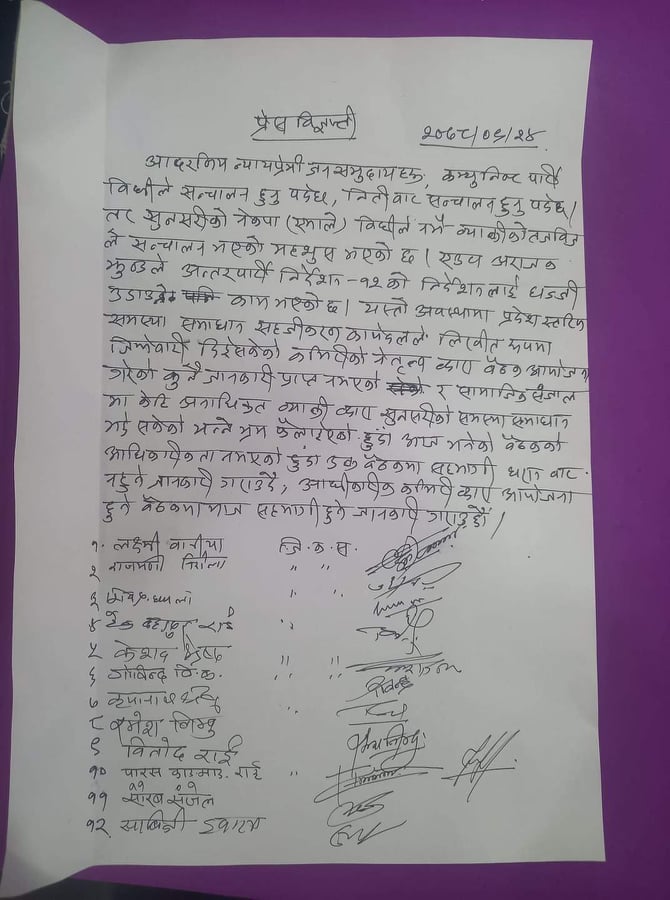 प्रेस विज्ञप्ती
२०७८/०६/२४
आदरणिय न्यायप्रेमी जनसमुदायहरु, कम्युनिष्ट पार्टी
विधीले सन्चालन हुनु पर्दछ, नितीबाट सन्चालन हुनु पर्दछ।
तर सुनसरीको नेकपा (एमाले) विधीले नभै व्याक्तीको तजविज
ले सन्चालन भएको महशुस भएको छ। अराजक
झुण्डले अन्तरपार्टी निर्देशन-१२ को निर्देशनलाई धज्जी
उडाउने काम भएको छ। यस्तो अवस्थामा प्रदेश स्तरिय
समस्या समाधान सहजीकरण कार्यदलले लिखीत रूपमा
जिम्मेवारी दिईसकेको कमिटीको नेतृत्व बाट बैठक आयोजना
गरेको कुनै जानकारी प्राप्त नभएको र सामाजिक संजाल
मा केहि अनाधिकृत व्याक्ती बाट सुनसरीको समस्या समाधान
भई सकेको भन्ने भ्रम फैलाईएको हुंदा आज भनेको बैठकको
आधिकारीकता नभएको हुंदा उक्त बैठकमा सहभागी धरान बाट
नहुने जानकारी गराउँदै, आधीकारीक कमिटी बाट आयोजना
हुने बैठकमा मात्र सहभागी हुने जानकारी गराउँछौं।
१. लक्ष्मी जि. क. स.
२ राजमणी " "
३ " "
४ टेक बहादुर राई "
५ केशव श्रेष्ठ " "
६ गोबिन्द वि.क. " "
७ कृपानाथ "
८ रमेश लिम्बु
९ विनोद राई
१० पारस राई "
११ सौरब संजेल
१२ साबित्री